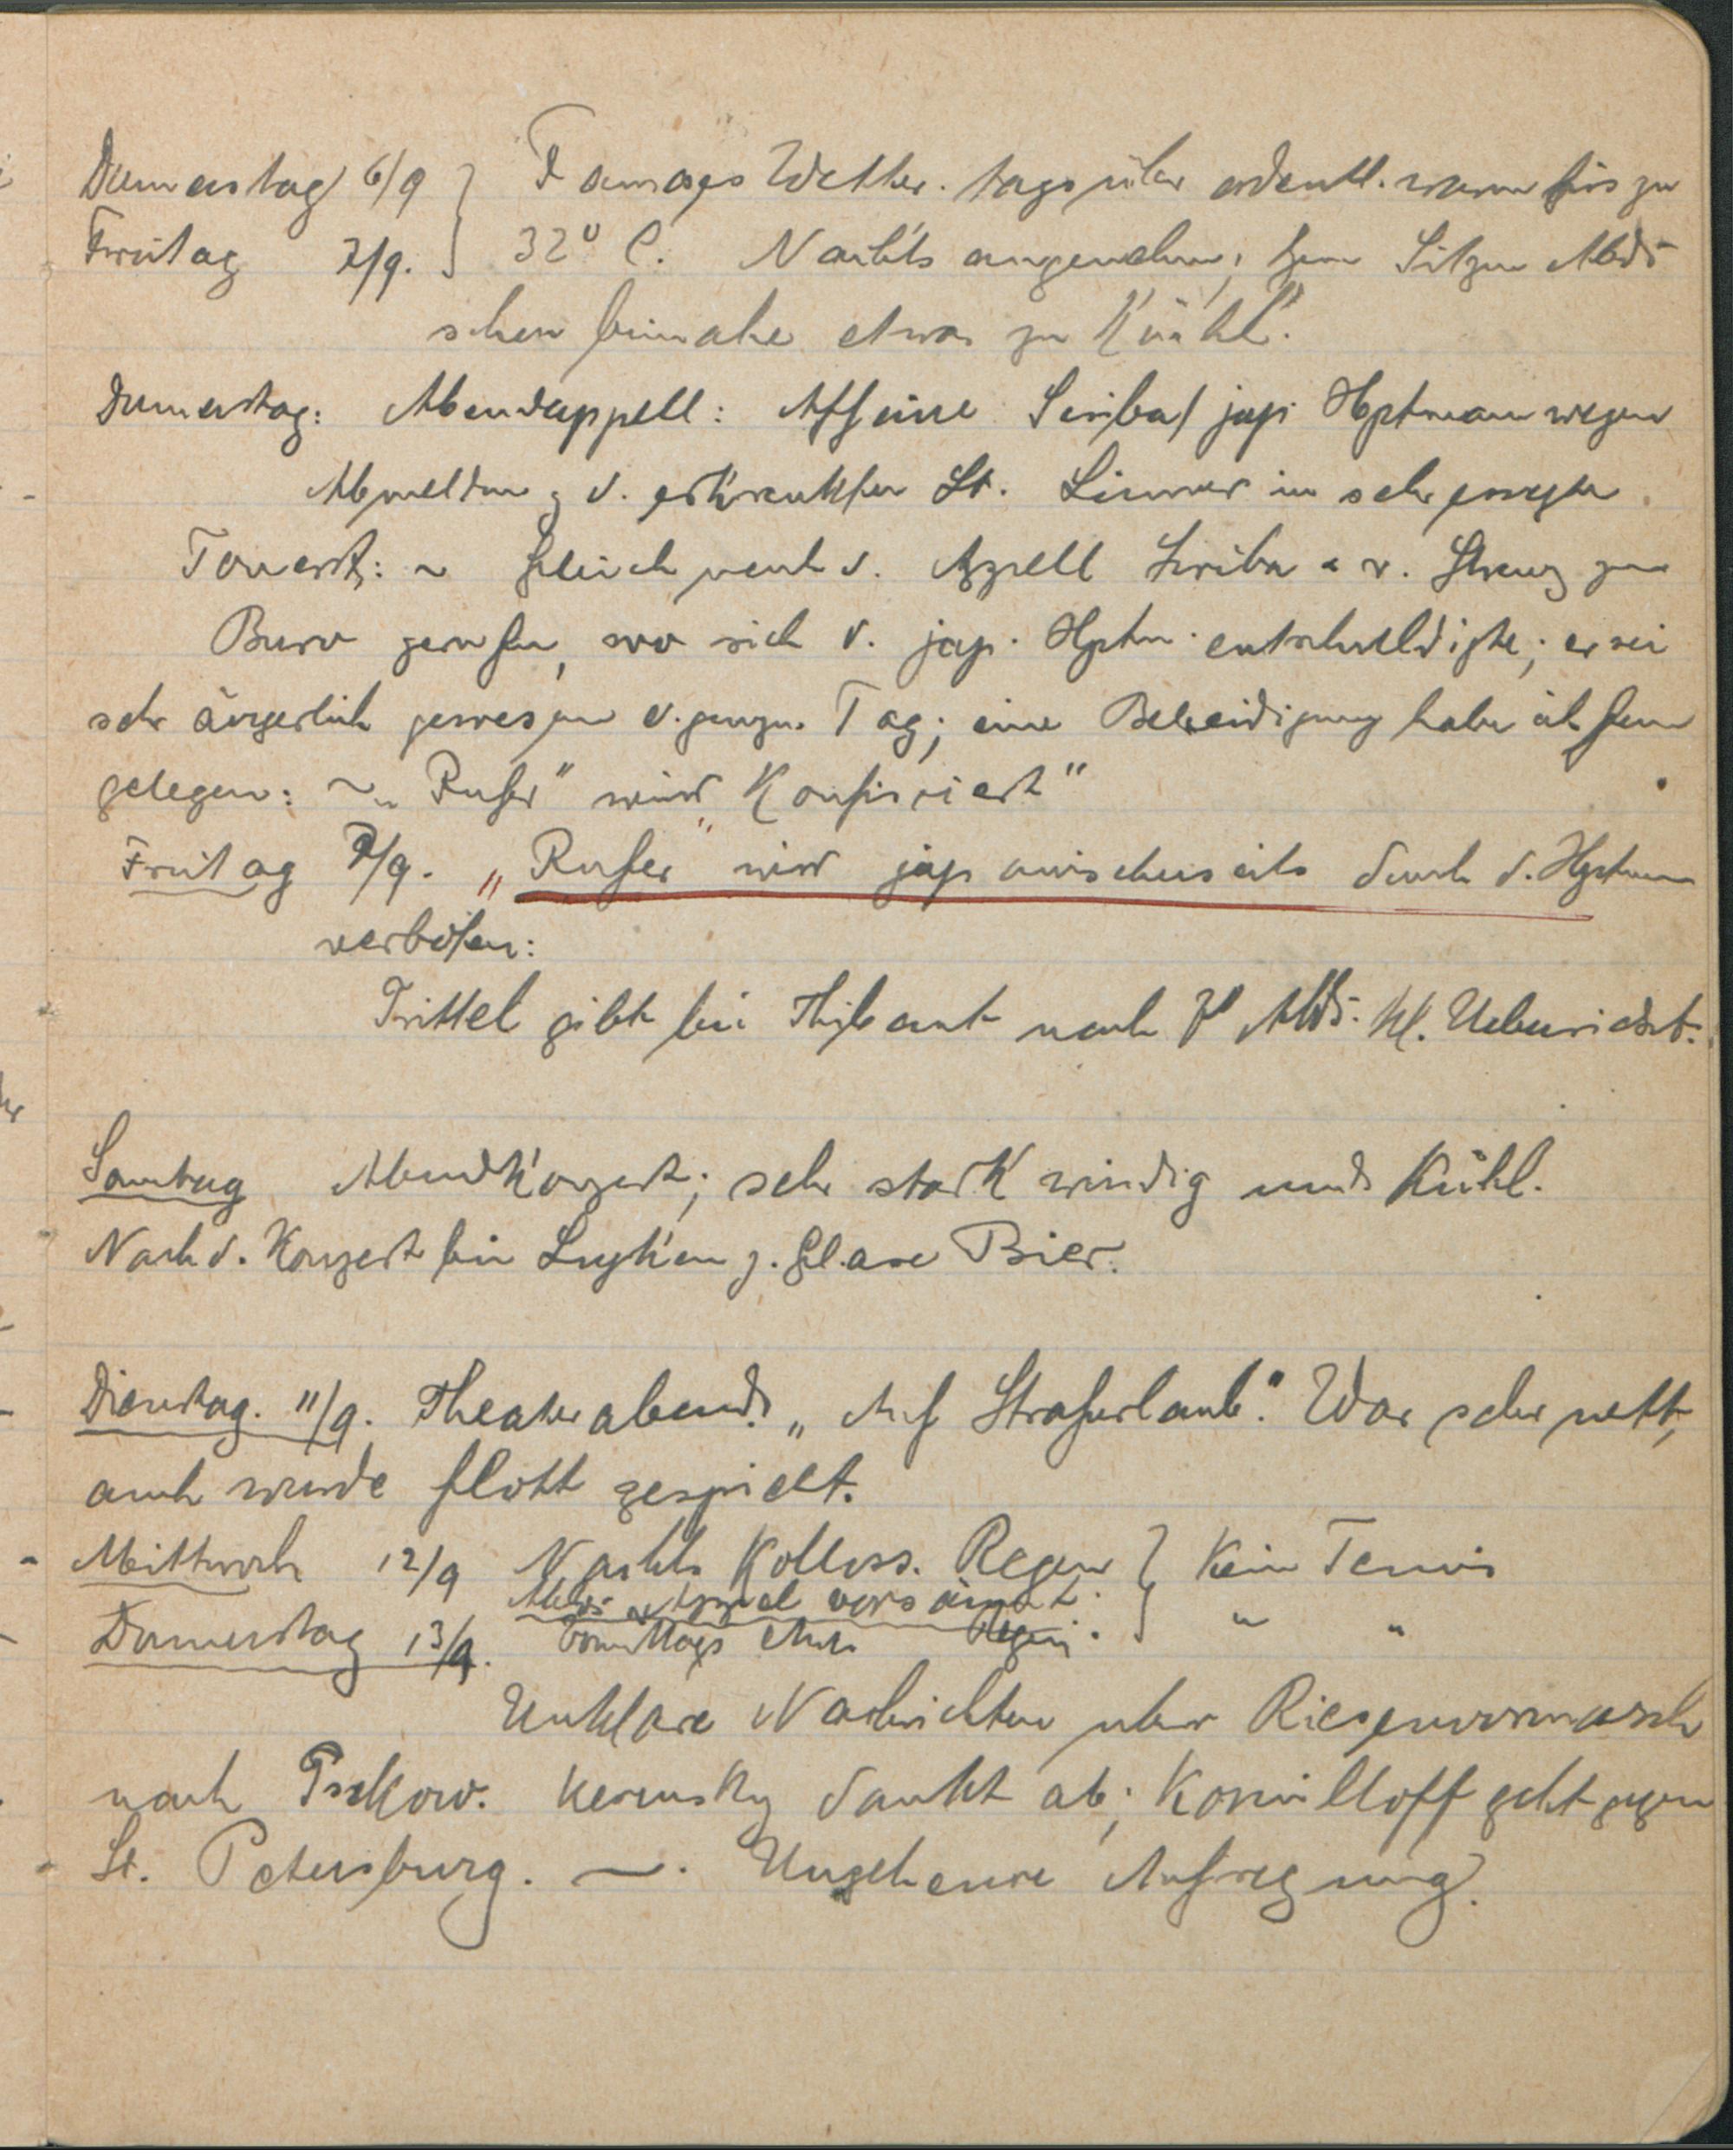 Donnerstag 6/9 } Famoses Wetter. tags über ordentl. warm bis zu
Freitag 7/9. } 32° C. Nachts angenehm; zum Sitzen Abds
schon beinahe etwas zu kühl.
Donnerstag: Abendappell: Affaire Scriba/ jap. Hptmann wegen
Abmeldung d. erkrankten Lt. in sehr
Gleich nach d. Appell Scriba u. v. zum
Buro gerufen, wo sich d. jap. Hptm. entschuldigte; er sei
sehr ärgerlich gewesen d. ganzen Tag; eine Beleidigung habe ihm fern
gelegen: ~ „Rufer" wird Konfisciert"
Freitag 7/9. „Rufer" wird japanischerseits durch d. Hptm
verboten:
Trittel gibt bei nach Abds. kl. Uebersicht.
Sonntag Abendkonzert; sehr stark windig und kühl.
Nach d. Konzert bei z. Glase Bier.
Dienstag. 11/9. Theaterabend. „Auf Strafurlaub". War sehr nett,
auch wurde flott gespielt.
Mittwoch 12/9 Nachts Koloss. Regen } Kein Tennis
Abds. Appel versäumt.
Donnerstag 13/9. Vormittags Regen. } " "
Unklare Nachrichten über Riesenvormarsch
nach Pskow. Kerensky dankt ab; Kornilloff geht gegen
St. Petersburg. ~. Ungeheure Aufregung.